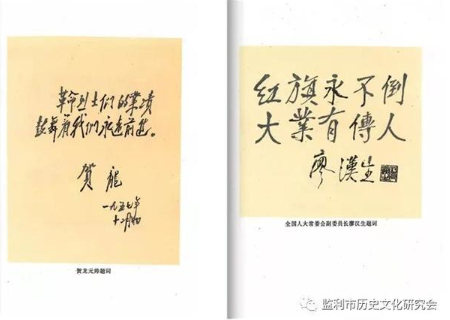 革命烈士们的業绩
鼓舞着我们永远前进。
贺龙
一九五七年
十二月
贺龙元帅题词
红旗永不倒
大業有傳人
廖漢生
全国人大常委会副委员长廖汉生题词
监利市历史文化研究会